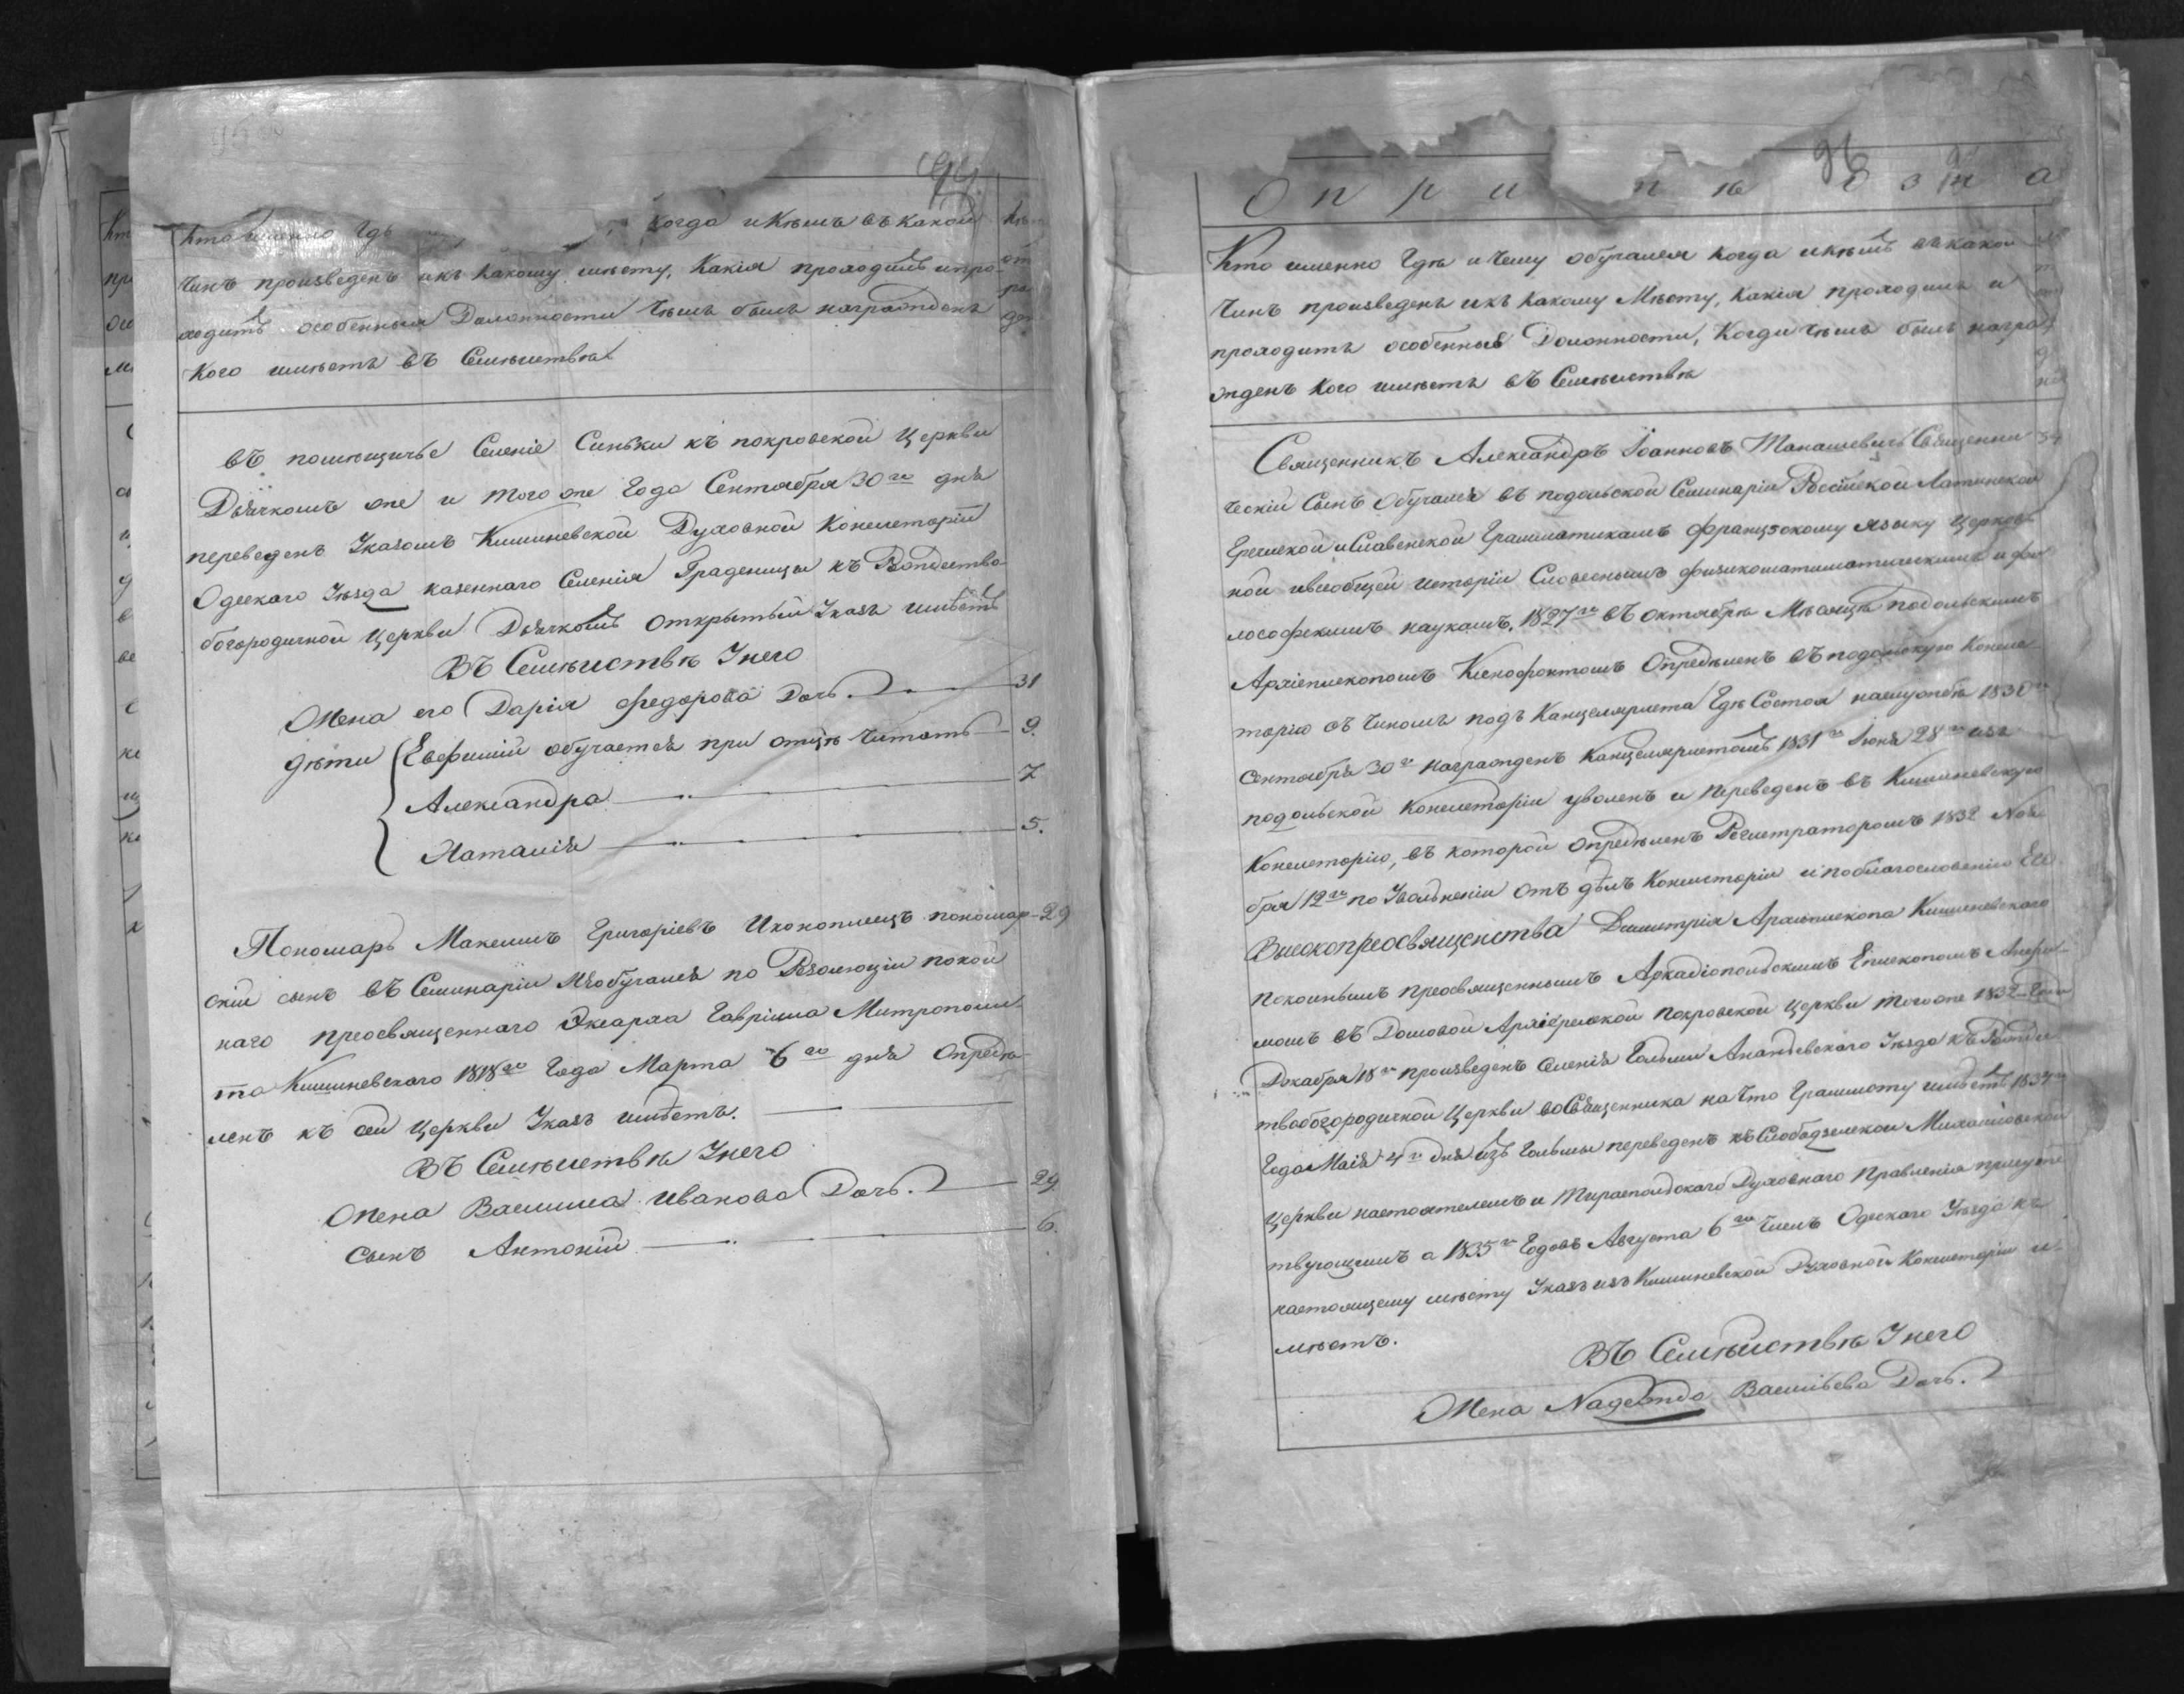 94
Кто именно Гдѣ когда и Кѣмъ въ какой
Чинъ произведенъ и къ какому мѣсту, Какія проходилъ и про-
ходитъ особенныя Должности Чѣмъ былъ награжденъ
Кого имѣетъ въ Семѣйствѣ
въ помѣщичье Селеніе Синьки къ покровской Церкви
Дьячкомъ же и того же Года Сентября 30го дня
переведенъ Указомъ Кишиневской Духовной Консисторіи
Одескаго Уѣзда казеннаго Селенія Граденицы къ Рождество
богородичной Церкви Дьячкомъ открытый Указъ имѣетъ
Въ Семѣйствѣ Унего
Жена его Дарія Федорова Дочь. 31
дѣти Евфимій обучается при отцѣ Читать 9.
Александра 7
Наталія 5.
Пономарь Максимъ Григоріевъ Иконописецъ пономар- 29
скій сынъ въ Семинаріи Необучался по Резолюціи покой
наго преосвященнаго Экзарха Гавріила Митрополи-
та Кишиневскаго 1818го Года Марта 6го дня Опредѣ-
ленъ къ сей Церкви Указъ имѣетъ.
Въ Семѣйствѣ Унего
Жена Василиса Иванова Дочь. 29
Сынъ Антоній 6.
96
О п р и
Кто именно Гдѣ и Чему обучался Когда и кѣмъ въ како
Чинъ произведенъ и къ Какому Мѣсту, Какія проходилъ и
проходитъ особенныя Должности, Когда Чѣмъ былъ награ
жденъ Кого имѣетъ въ Семѣйствѣ
Священникъ Александръ Іоанновъ Танашевичъ Священни-
ческій Сынъ Обучался въ подольской Семинаріи Россійской Латинской
Греческой и Славенской Грамматикамъ Французскому языку Церков
ной и всеобщей исторіи Словеснымъ физикоматиматическимъ и фи
лософскимъ наукамъ, 1827го въ октябрѣ Мѣсяцѣ подольскимъ
Архіепископомъ Ксенофонтомъ Опредѣленъ въ подольскую Консис
торію съ Чиномъ подъ Канцеляриста Гдѣ Состоя на службѣ 1830го
Сентября 30го награжденъ Канцеляристомъ 1831го Іюня 28го изъ
подольской консисторіи уволенъ и переведенъ въ Кишиневскую
Консисторію, въ которой опредѣленъ Регистраторомъ 1832 Ноя
бря 12го по Увольненіи отъ дѣлъ Консисторіи и поблагословенію Его
Высокопреосвященства Димитрія Архіепископа Кишиневскаго
покойнымъ преосвященнымъ Аркадіопольскимъ Епископомъ
въ Домовой Архіерейской покровской церкви того же 1832 Года
Декабря 18го произведенъ селенія Гольмы Ананьевскаго Уѣзда къ Рождес
твобогородичной Церкви воСвященника на Что Граммоту имѣетъ 1834го
Года Маія 4го дня изъ Гольмы переведенъ къ Слободзейской Михайловской
Церкви настоятелемъ и Тираспольскаго Духовнаго Правленія присутс
твующимъ а 1835го Годовъ Августа 6го Чиелъ Одескаго Уѣзда къ
настоящему мѣсту Указъ изъ Кишиневской Духовной Консисторіи и-
мѣетъ.
Въ Семѣйствѣ Унего
Жена Надежда Васильева Дочь.